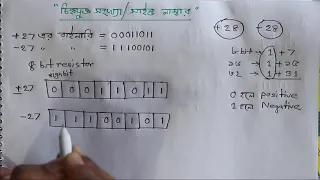 "চিহ্নযুক্ত সংখ্যা/ সাইন্ড নাম্বার"
+27 এর বাইনারি = 00011011
-27 " " = 11100101
8 bit resistor
signbit
+27 0 0 0 1 1 0 1 1
-27 1 1 1 0 0 1 0 1
+28 -28
৮ bit - 1 + 7
১৬ " - 1 + 15
৩২ " - 1 + 31
0 হলে positive
1 হলে Negative